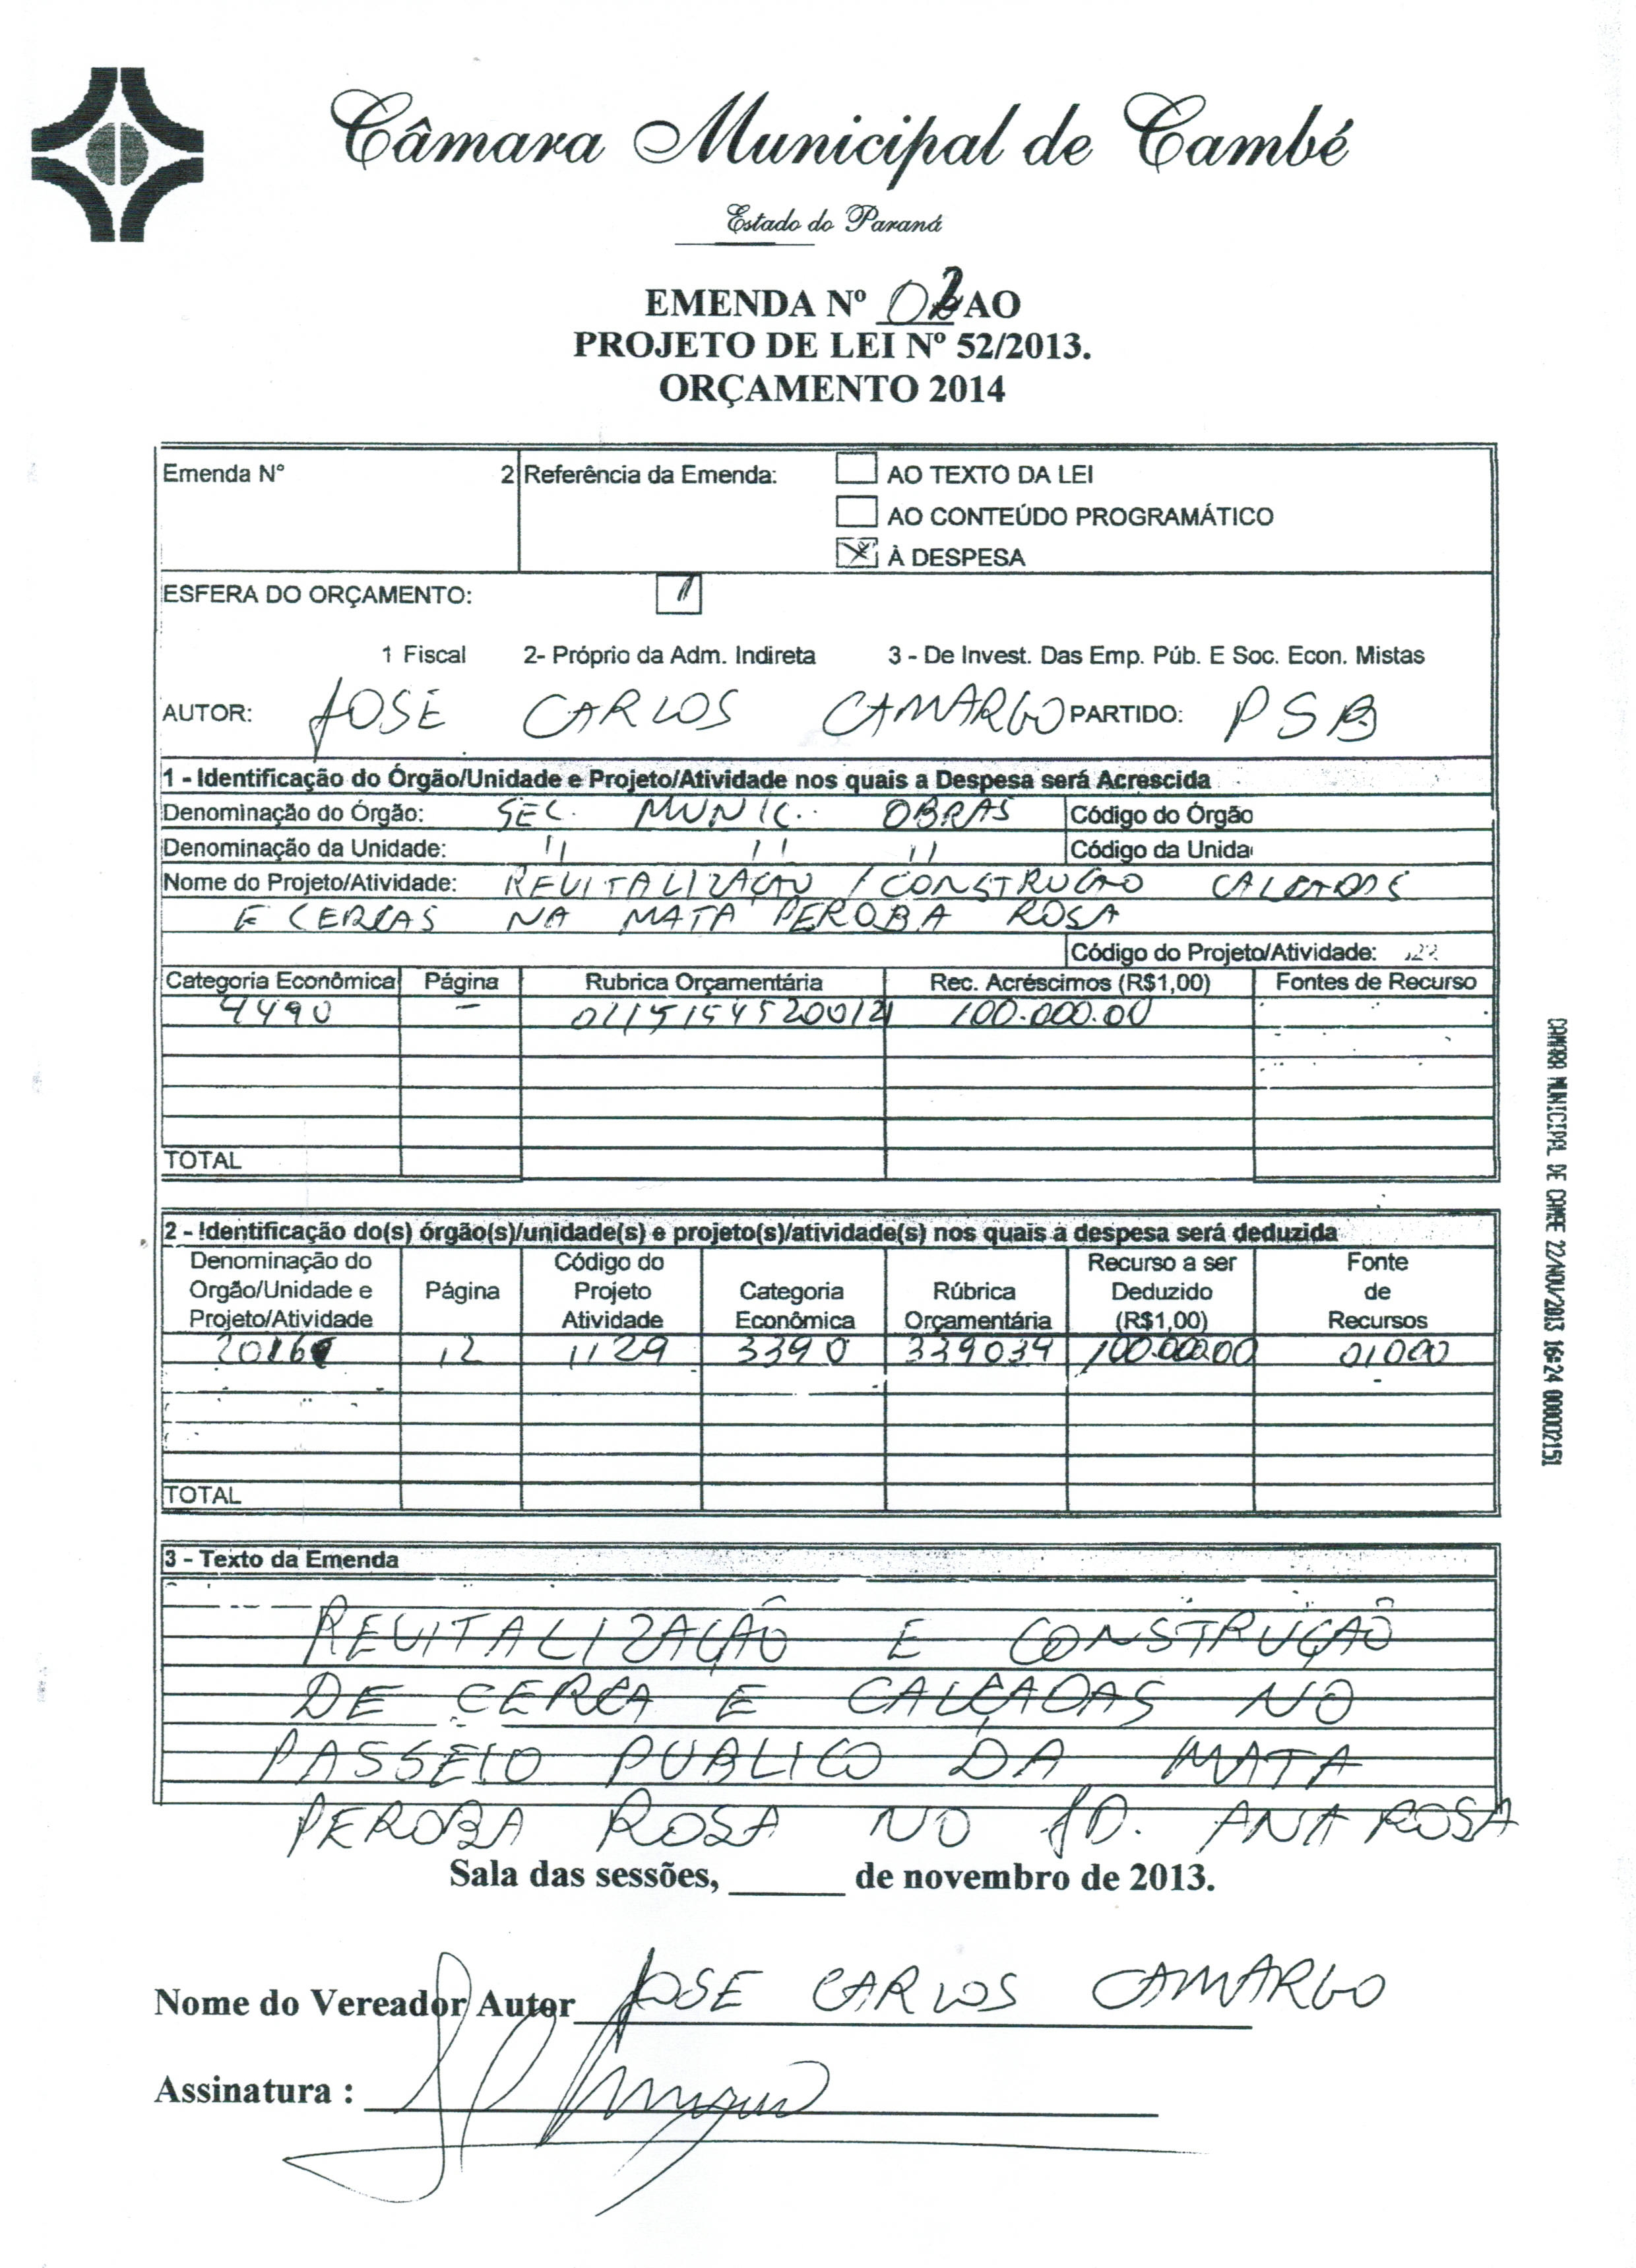 Câmara Municipal de Cambé
Estado do Paraná
EMENDA Nº 02 AO
PROJETO DE LEI Nº 52/2013.
ORÇAMENTO 2014
Emenda N° 2 Referência da Emenda: AO TEXTO DA LEI
AO CONTEÚDO PROGRAMÁTICO
À DESPESA
ESFERA DO ORÇAMENTO: 1
1 Fiscal 2- Próprio da Adm. Indireta 3 - De Invest. Das Emp. Púb. E Soc. Econ. Mistas
AUTOR: JOSÉ CARLOS CAMARGO PARTIDO: PSB
1 - Identificação do Órgão/Unidade e Projeto/Atividade nos quais a Despesa será Acrescida
Denominação do Órgão: SEC. MUNIC. OBRAS Código do Órgão
Denominação da Unidade: " " " Código da Unida
Nome do Projeto/Atividade: REVITALIZAÇÃO / CONSTRUÇÃO CALÇADAS
E CERCAS NA MATA PEROBA ROSA
Código do Projeto/Atividade:
Categoria Econômica Página Rubrica Orçamentária Rec. Acréscimos (R$1,00) Fontes de Recurso
4490 - 100.000.00
TOTAL
2 - Identificação do(s) órgão(s)/unidade(s) e projeto(s)/atividade(s) nos quais a despesa será deduzida
Denominação do Orgão/Unidade e Projeto/Atividade Página Código do Projeto Atividade Categoria Econômica Rúbrica Orçamentária Recurso a ser Deduzido (R$1,00) Fonte de Recursos
12 1129 3390 339039 100.000.00 01000
TOTAL
3 - Texto da Emenda
REVITALIZAÇÃO E CONSTRUÇÃO
DE CERCA E CALÇADAS NO
PASSEIO PUBLICO DA MATA
PEROBA ROSA NO JD. ANA ROSA
Sala das sessões, ______ de novembro de 2013.
Nome do Vereador Autor JOSE CARLOS CAMARGO
Assinatura :
CAMARA MUNICIPAL DE CAMBE 22/NOV/2013 16:24 000002151